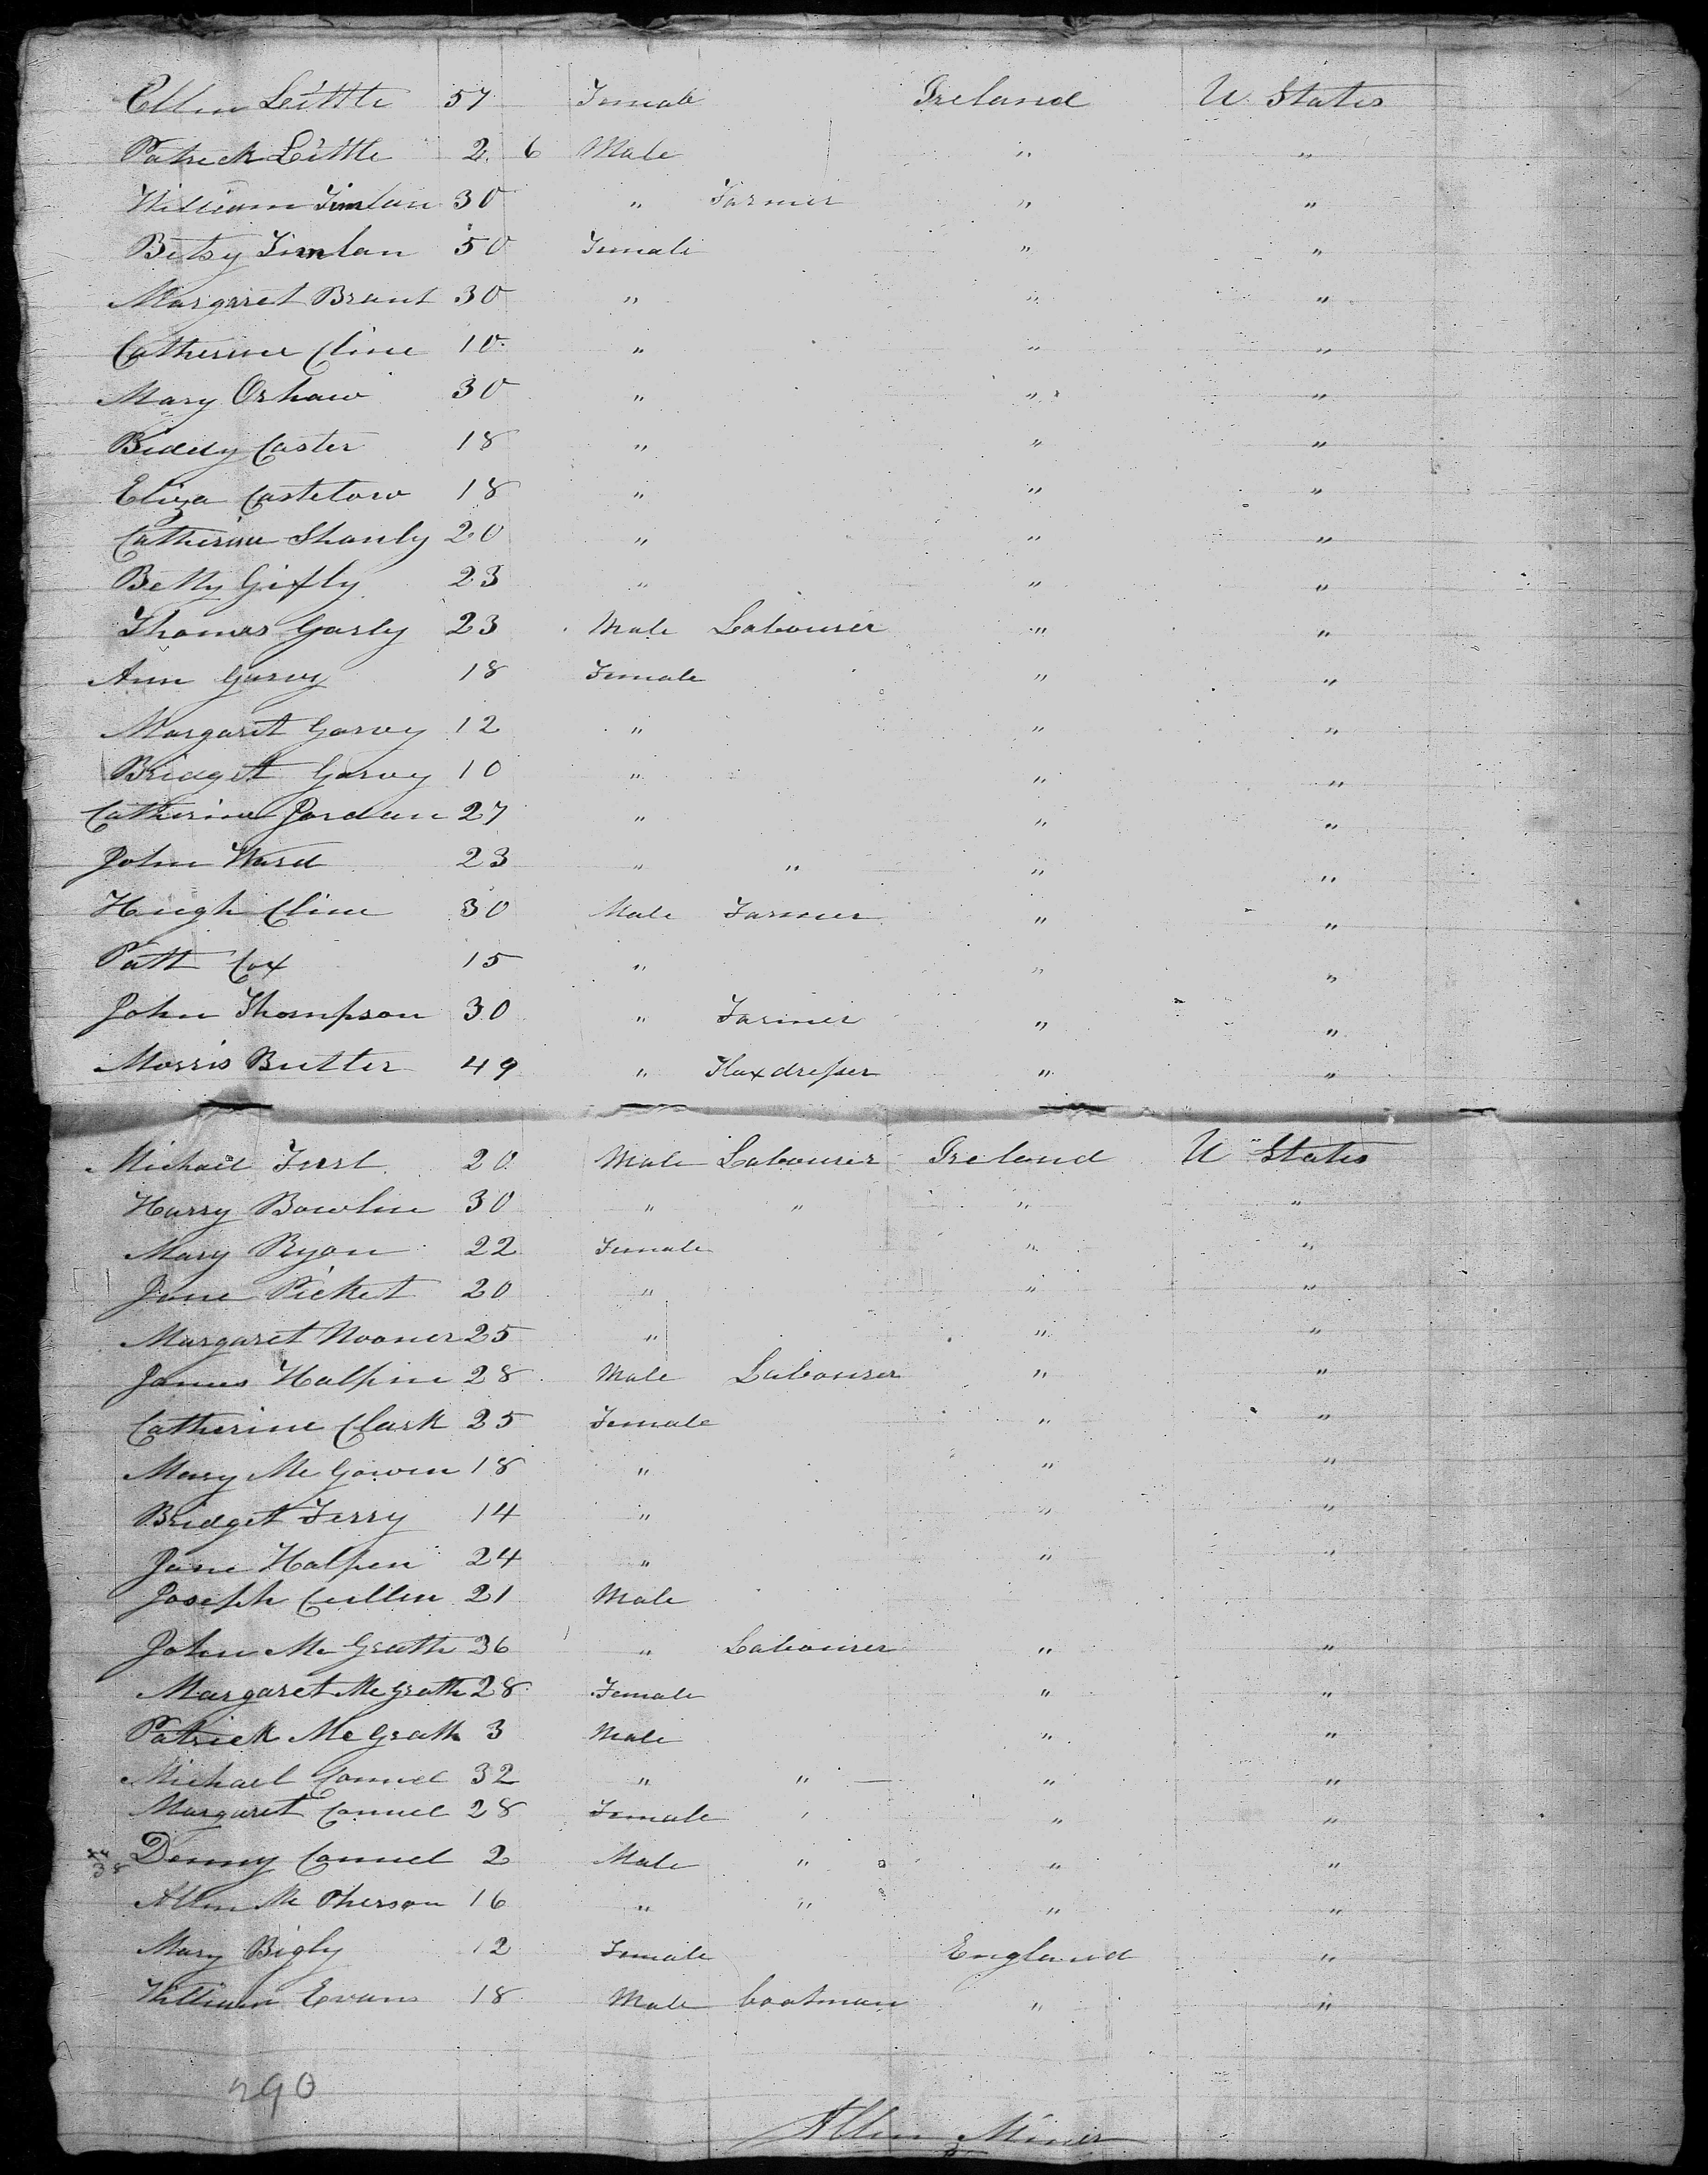 Ellen Little 57 Female Ireland U. States
Patrick Little 2 6 Male " "
William Timlan 30 " Farmer " "
Betsy Timlan 50 Female " "
Margaret Brant 30 " " "
Catherine Cline 10 " " "
Mary Oshaw 30 " " "
Biddy Caster 18 " " "
Eliza Castelow 18 " " "
Catherine Shanly 20 " " "
Betty Gifty 23 " " "
Thomas Garly 23 Male Labourer " "
Ann Garvy 18 Female " "
Margaret Garvey 12 " " "
Bridgett Garvey 10 " " "
Catherine Jordan 27 " " "
John Ward 23 " " " "
Hugh Cline 30 Male Farmer " "
Patt Cox 15 " " "
John Thompson 30 " Farmer " "
Morris Butler 49 " Flaxdresser " "
Michael 20 Male Labourer Ireland U States
Harry Bowlin 30 " " " "
Mary Ryan 22 Female " "
Jane Picket 20 " " "
Margaret Nooner 25 " " "
James Halpin 28 Male Labourer " "
Catherine Clark 25 Female " "
Mary McGowen 18 " " "
Bridget Ferry 14 " " "
Jane Halpen 24 " " "
Joseph Cullen 21 Male
John McGrath 36 " Labourer " "
Margaret McGrath 28 Female " "
Patrick McGrath 3 Male " "
Michael Connel 32 " " " "
Margaret Connel 28 Female " "
Denny Connel 2 Male " " "
Allen McPherson 16 " " " "
Mary Bigly 12 Female England "
William Evans 18 Male boatman " "
290
Allen Miner